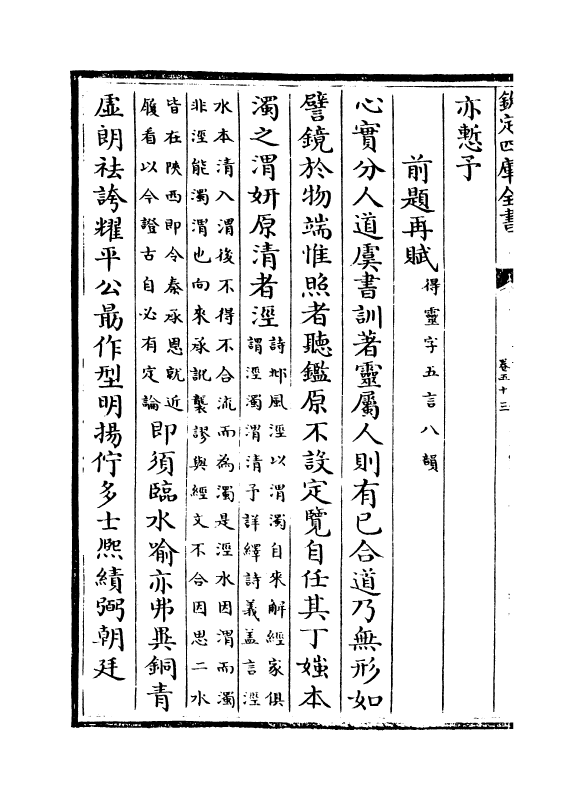 欽定四庫全書
卷五十三
亦慙予
前題再賦
得靈字五言八韻
心實分人道虞書訓著靈屬人則有已合道乃無形如
譬鏡於物端惟照者聽鑑原不設定覽自任其丁媸本
濁之渭妍原清者涇
詩邶風涇以渭濁自來解經家俱
謂涇濁渭清予詳繹詩義盖言涇
水本清入渭後不得不合流而為濁是涇水因渭而濁
非涇能濁渭也向來承訛襲謬與經文不合因思二水
皆在陜西即今秦承恩就近
履看以今證古自必有定論
即須臨水喻亦弗異銅青
虛朗祛誇耀平公最作型明揚佇多士熙績弼朝廷